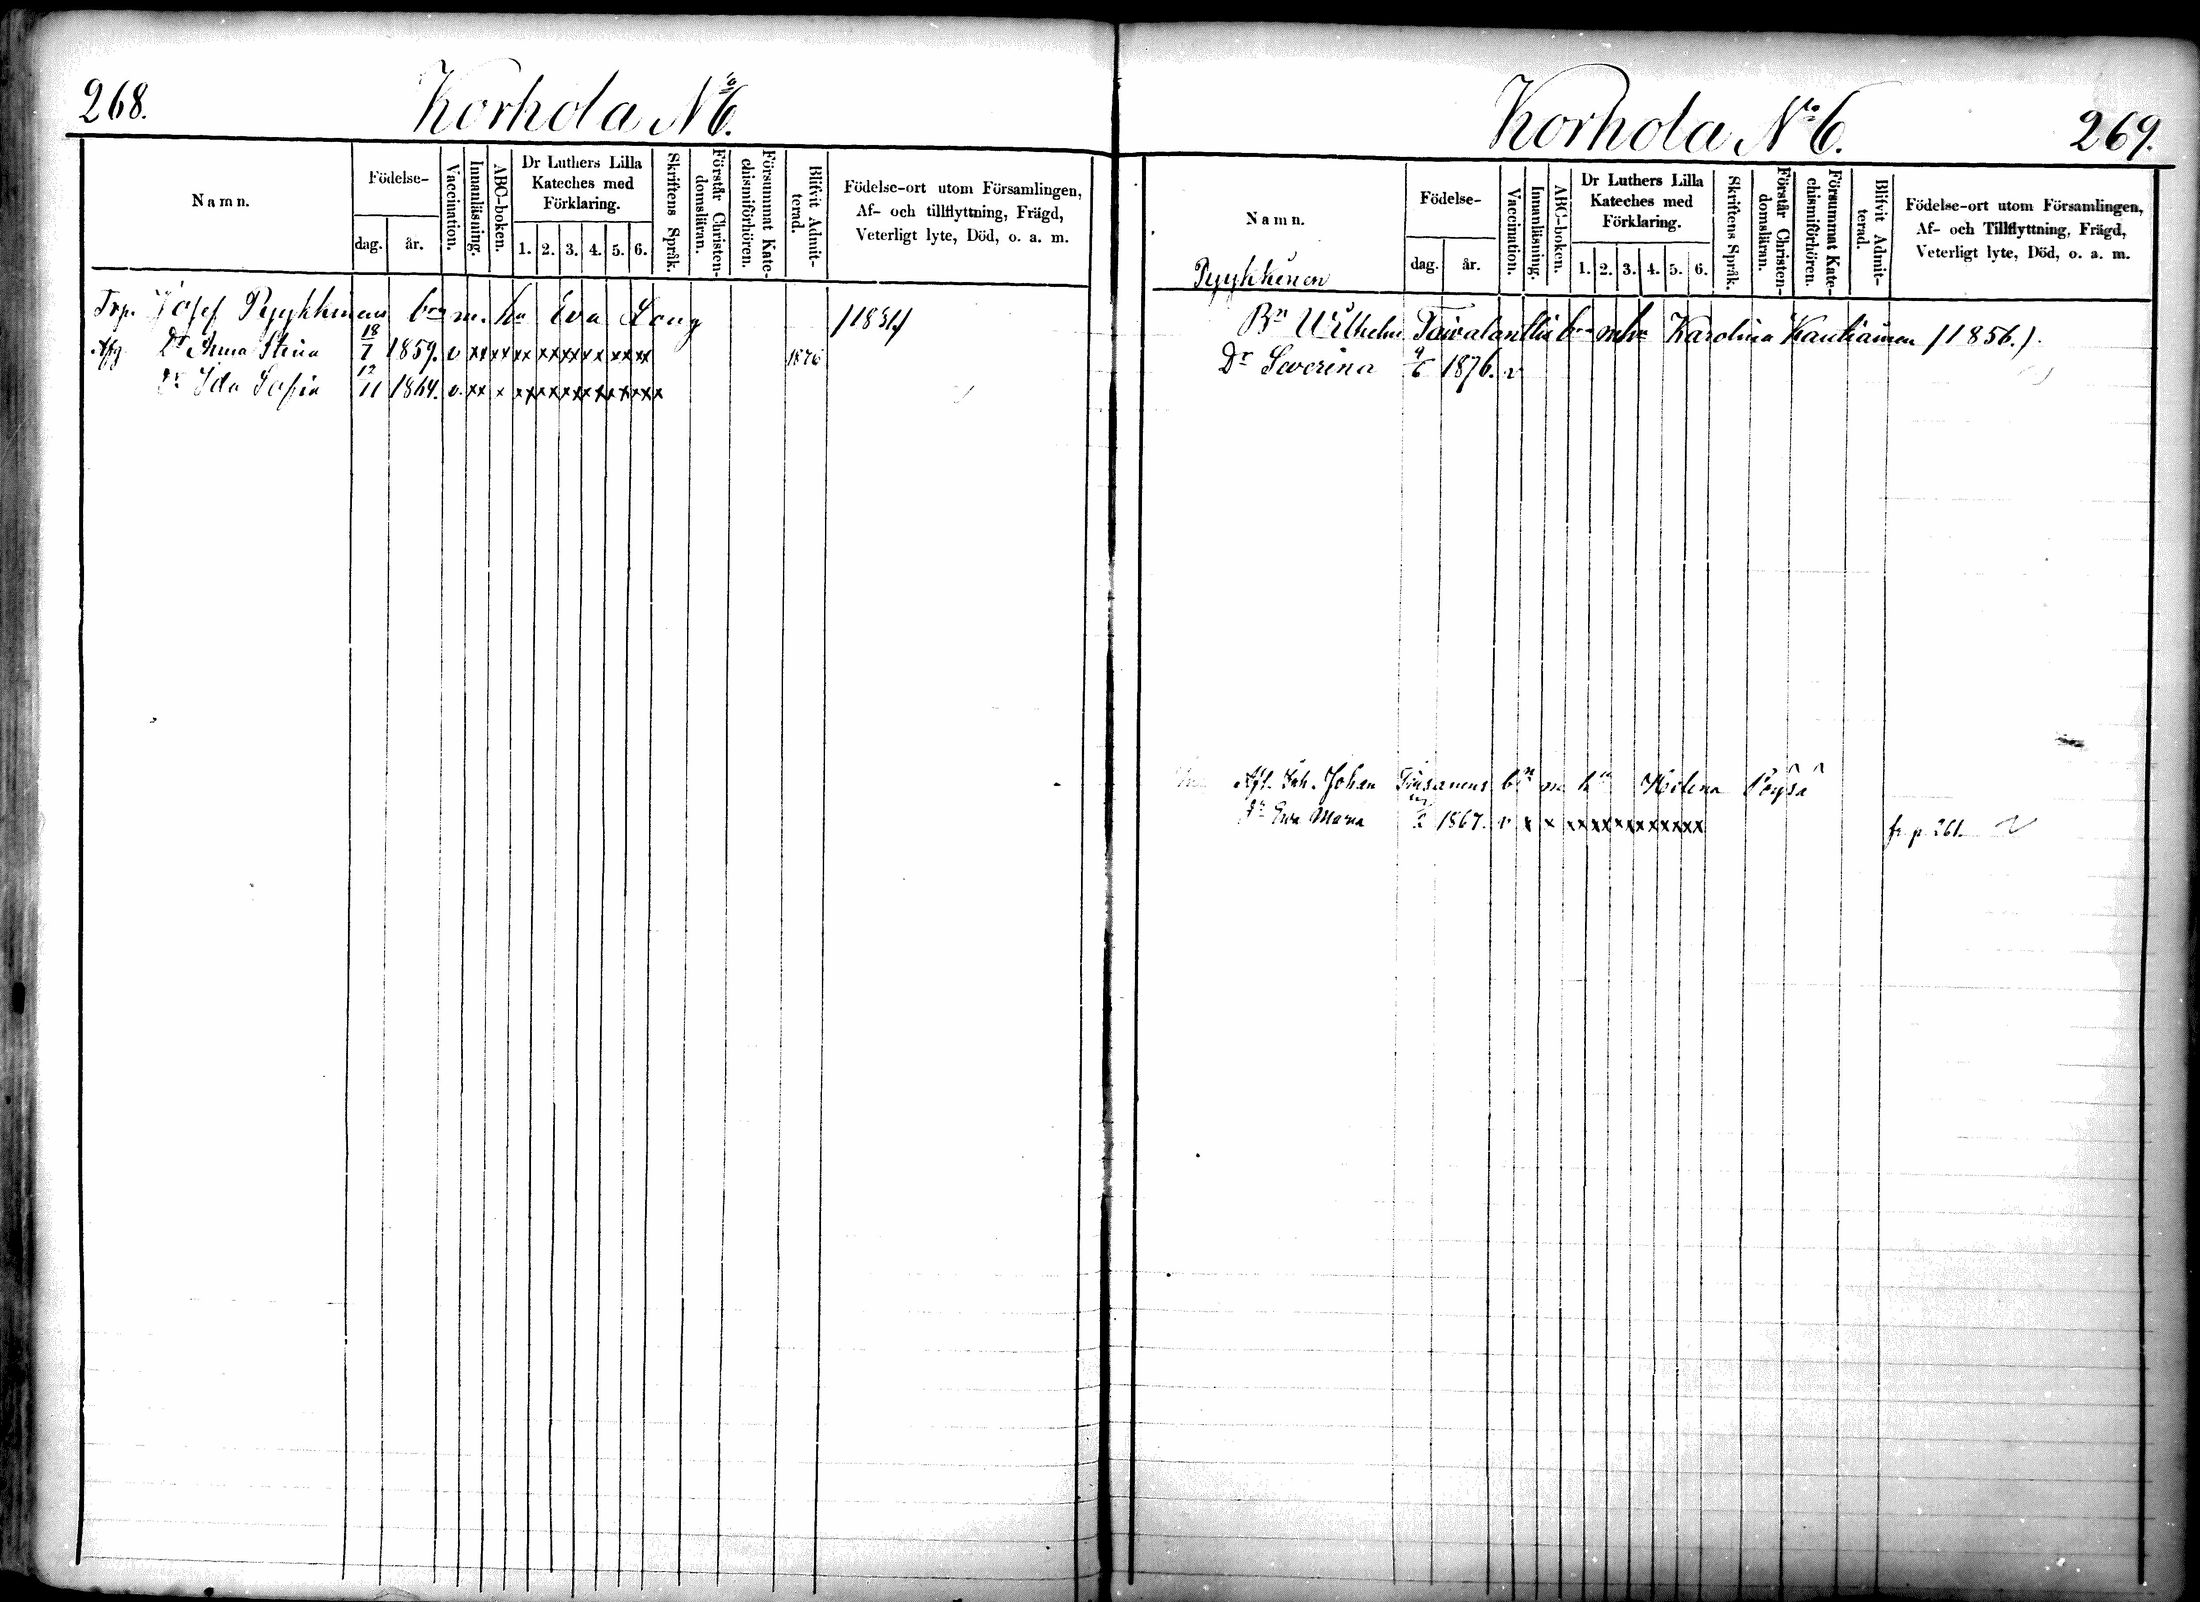 268.
Korhola No 6.
Namn.
Födelse-
dag. år.
Vaccination.
Innanläsning.
ABC-boken.
Dr Luthers Lilla
Kateches med
Förklaring.
1. 2. 3. 4. 5. 6.
Skriftens Språk.
Förstår Christen-
domsläran.
Försummat Kate-
chismiförhören.
Blifvit Admit-
terad.
Födelse-ort utom Församlingen,
Af- och tillflyttning, Frägd,
Veterligt lyte, Död, o. a. m.
Trp. Josef Pyykkinens bn m. hu Eva Long /1831/
Afg. Dr Anna Stina 18/7 1859. v xx xx xx xx xx xx xx xx 1876
Dr Ida Sofia 12/11 1864. v. xx x xx xx xx xx xx xx
Korhola No 6.
269.
Namn.
Födelse-
dag. år.
Vaccination.
Innanläsning.
ABC-boken.
Dr Luthers Lilla
Kateches med
Förklaring.
1. 2. 3. 4. 5. 6.
Skriftens Språk.
Förstår Christen-
domsläran.
Försummat Kate-
chismiförhören.
Blifvit Admit-
terad.
Födelse-ort utom Församlingen,
Af- och Tillflyttning, Frägd,
Veterligt lyte, Död, o. a. m.
Pyykkinen
Bn Wilhelm bn m hu Karolina /1856./
Dr Severina 9/6 1876. v
Afl. Inh. Johan bn m hu Helena Pöysä
Dr Eva Maria 1867. v x x xx xx xx xx xx xx fr. p. 261.